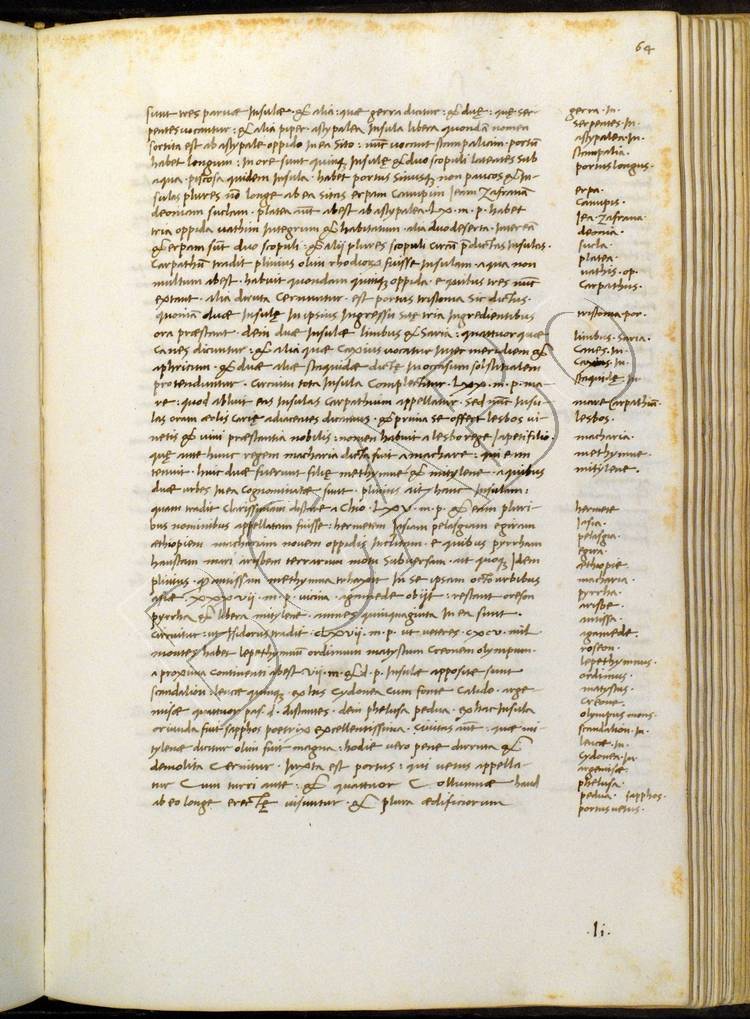 64
sunt tres parvæ Insulæ · & alia · quæ gerra dicitur : & duę · quę ser-
pentes vocantur : & alia piper · astypalea Insula libera quondā nomen
sortita est ab astypale oppido in ea sito : nūc vocant stimpaliam · portū
habet longum : In ore sunt quinqȝ Insulę & duo scopuli latentes sub
aqua · piscosa quidem Insula · habet portus sinusqȝ non paucos & In-
sulas plures nō longe ab ea sitas erpam Canupim Ieam Zafranā
deoniam suclam · platea aūt abest ab astypalea · LX · m · p · habet
tria oppida vathim Integrum & habitatum · alia duo deserta · Inter eā
& erpam sūt duo scopuli : & alij plures scopuli circū p̄dictas Insulas ·
Carpathū tradit plinius olim rhodioꝝ fuisse Insulam · a qua non
multum abest · habuit quondam quinqȝ oppida · e quibus tres nūc
extant · alia diruta Cernuntur · est portus tristomia sic dictus ·
quoniā duæ Insulę in ipsius Ingressu sitę tria Ingredientibus
ora præstant · dein duæ Insulæ limbus & Saria : quattuor quæ
Canes dicuntur : & alia quæ Caxius vocatur Inter meridiem &
aphricum : & duæ aliæ stiquidæ dictę In occasum solstitialem
protenduntur · Circuitu tota Insula Complectitur · LXX · m · p · ma-
re : quod abluit eas Insulas Carpathium appellatur · sed nūc Insu-
las oram æolis Carię adiacentes dicimus · & prima se offert lesbos vi-
netis & vini præstantia nobilis : nomen habuit a lesbo rege Iapeti filio ·
quę ante hunc regem macharia dicta fuit a machare : qui eam
tenuit · huic duæ fuerunt filię methymne & mitylene · a quibus
duæ urbes In ea Cognominatæ sunt · plinius ait hanc Insulam :
quam tradit Clarissimam distare a Chio · LXV · m · p · & eam pluri-
bus nominibus appellatam fuisse : hermetem Iasiam pelasgiam egiram
æthiopiem macharim novem oppidis Inclitam · e quibus pyrrham
haustam mari arisbem terrarum motu subversam · ait quoqȝ Idem
plinius · antissam methymna traxit In se ipsam octo urbibus
asię · XXXVII · m · p · vicina · agamede obijt : restant ereson
pyrrha & libera mitylene · annos quinquaginta In ea sunt ·
Circuitur : ut Isidorus tradit · CLXVII · m · p · ut veteres · CXCV · mil
montes habet lepethymnū ordinnum matystum Creonem olympum ·
a proxima Continenti abest · VII · m · & d · p · Insulæ appositæ sunt
scandalion · leuce quinqȝ · ex his Cydonea Cum fonte Calido · arge-
nusæ quattuor pas · d · distantes · dein phelusa pedua · ex hac Insula
oriunda fuit sapphos poetrix excellentissima · Civitas aūt : quæ mi-
tylenæ dicitur olim fuit magna : hodie vero pene dirruta &
demolita Cernitur · Iuxta est portus : qui vetus appella
tur Cum turri ante · & quattuor Collumnæ haud
ab eo longe erectę visuntur · & plura ædificiorum
gerra · In ·
serpentes · In ·
astypalea · In ·
stimpalia ·
portus longus ·
erpa ·
Canupis ·
Iea · Zafrana ·
deonia ·
sucla ·
platea ·
vathis · op ·
Carpathus ·
tristoma · por ·
limbus · Saria ·
Canes · In ·
Caxius · In ·
stiquidę · In
mare Carpathiū ·
lesbos ·
macharia ·
methymne ·
mitylene ·
hermete
Iasia ·
pelasgia ·
egira ·
æthiopie ·
macharia ·
pyrrha ·
arisbe ·
antissa ·
agamede ·
roseon ·
lepethymnus ·
ordinnus ·
matystus ·
Creone ·
olympus mons ·
scandalion · In ·
leuce · In ·
Cydonea · In ·
argenusæ ·
phelusa ·
pedua · sapphos ·
portus vetus ·
· Ii ·